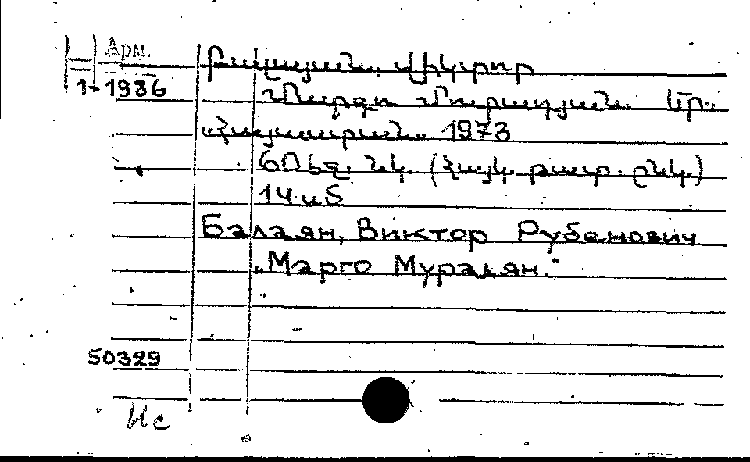 Арм.
1-1936
Բալայան, Վիկտոր
Մարգո Մուրադյան. Եր.
„Հայաստան" 1973
60 էջ. նկ. (Հայկ. թատ. ընկ.)
14 և 5
Балаян, Виктор Рубенович
„Марго Мурадян."
50329
Ис